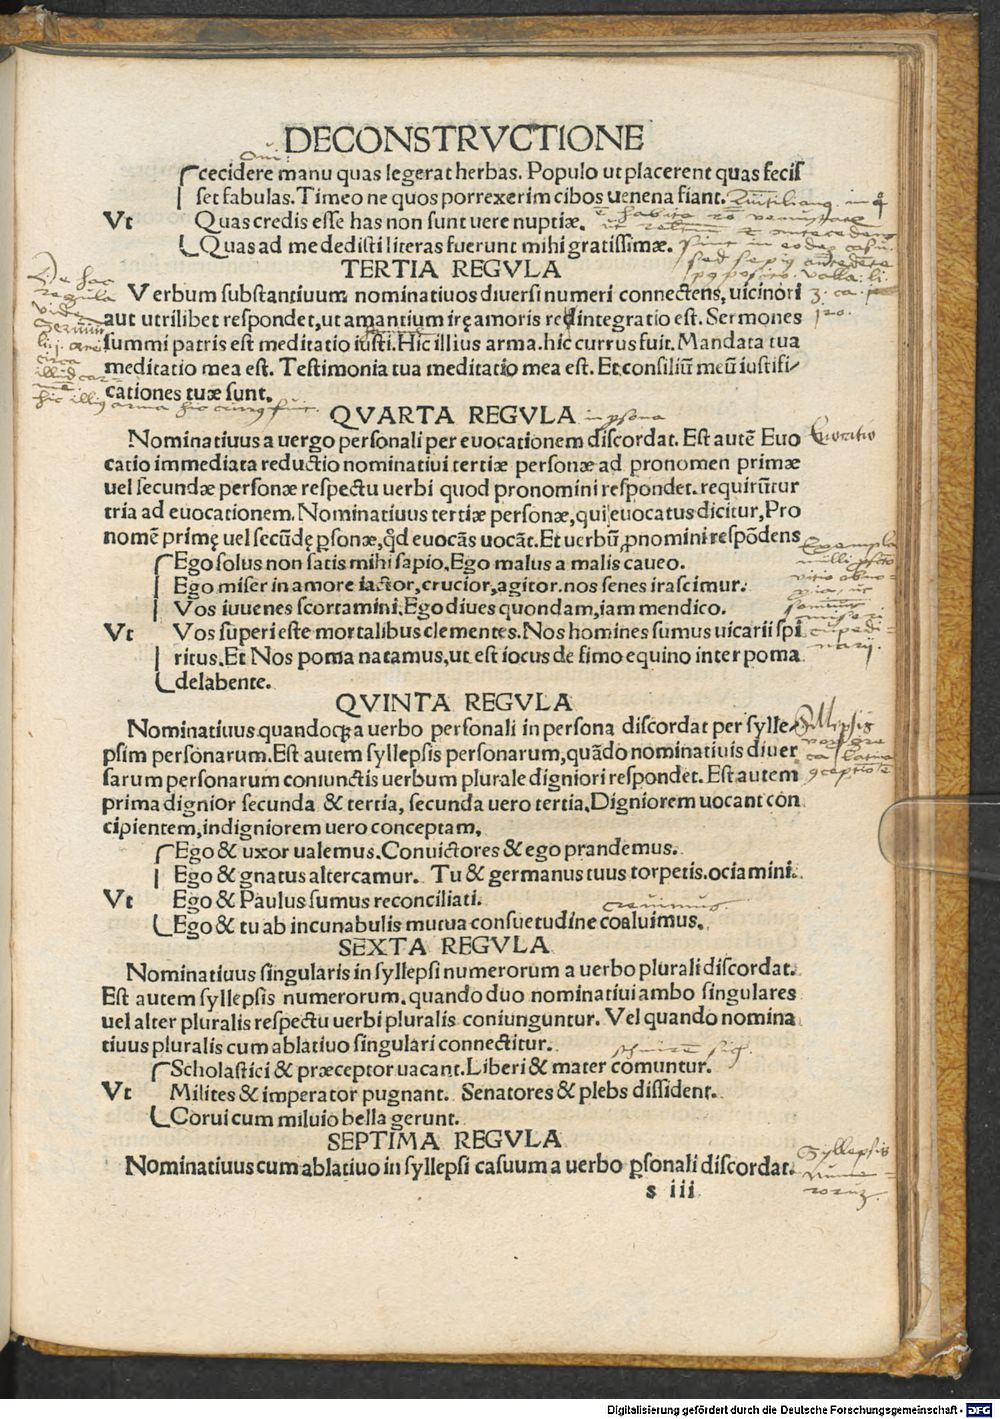 DECONSTRVCTIONE
Oui:
cecidere manu quas legerat herbas. Populo ut placerent quas fecis
set fabulas. Timeo ne quos porrexerim cibos uenena fiant.
Vt Quas credis esse has non sunt uere nuptiæ.
Quas ad me dedisti literas fuerunt mihi gratissimæ.
TERTIA REGVLA
Verbum substantiuum nominatiuos diuersi numeri connectens, uicinori
aut utrilibet respondet, ut amantium irę amoris redintegratio est. Sermones
summi patris est meditatio iusti. Hic illius arma. hic currus fuit. Mandata tua
meditatio mea est. Testimonia tua meditatio mea est. Et consiliū meū iustifi/
cationes tuæ sunt.
De hac
regula
vide
circa
hic illiꝰ arma hic currꝰ fuit.
QVARTA REGVLA
in psona
Nominatiuus a uergo personali per euocationem discordat. Est autē Euo
catio immediata reductio nominatiui tertiæ personæ ad pronomen primæ
uel secundæ personæ respectu uerbi quod pronomini respondet. requirūtur
tria ad euocationem. Nominatiuus tertiæ personæ, qui euocatus dicitur, Pro
nomē primę uel secūdę ꝑsonæ, qđ euocās uocāt. Et uerbū, ꝓnomini respōdens
Euocatio
Ego solus non satis mihi sapio. Ego malus a malis caueo.
Ego miser in amore iactor, crucior, agitor. nos senes irascimur.
Vos iuuenes scortamini. Ego diues quondam, iam mendico.
Vt Vos superi este mortalibus clementes. Nos homines sumus uicarii spi
ritus. Et Nos poma natamus, ut est iocus de fimo equino inter poma
delabente.
QVINTA REGVLA
Nominatiuus quandoqꝫ a uerbo personali in persona discordat per sylle/
psim personarum. Est autem syllepsis personarum, quādo nominatiuis diuer
sarum personarum coniunctis uerbum plurale digniori respondet. Est autem
prima dignior secunda & tertia, secunda uero tertia. Digniorem uocant con
cipientem, indigniorem uero conceptam.
Syllepsis
Ego & uxor ualemus. Conuictores & ego prandemus.
Ego & gnatus altercamur. Tu & germanus tuus torpetis. ociamini.
Vt Ego & Paulus sumus reconciliati.
creuimus
Ego & tu ab incunabulis mutua consuetudine coaluimus.
SEXTA REGVLA
Nominatiuus singularis in syllepsi numerorum a uerbo plurali discordat.
Est autem syllepsis numerorum. quando duo nominatiui ambo singulares
uel alter pluralis respectu uerbi pluralis coniunguntur. Vel quando nomina
tiuus pluralis cum ablatiuo singulari connectitur.
Scholastici & præceptor uacant. Liberi & mater comuntur.
Vt Milites & imperator pugnant. Senatores & plebs dissident.
Corui cum miluio bella gerunt.
SEPTIMA REGVLA
Nominatiuus cum ablatiuo in syllepsi casuum a uerbo ꝑsonali discordat.
Syllepsis
nume
rorum
s iii
Digitalisierung gefördert durch die Deutsche Forschungsgemeinschaft - DFG